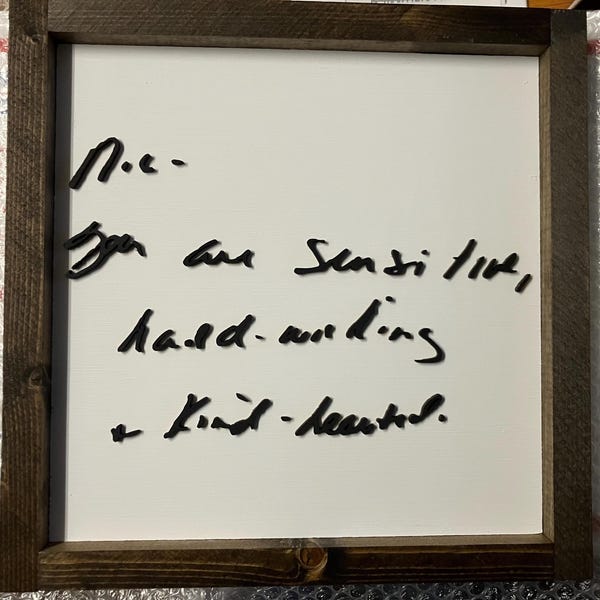 you are sensitive,
hard-working
+ kind-hearted.